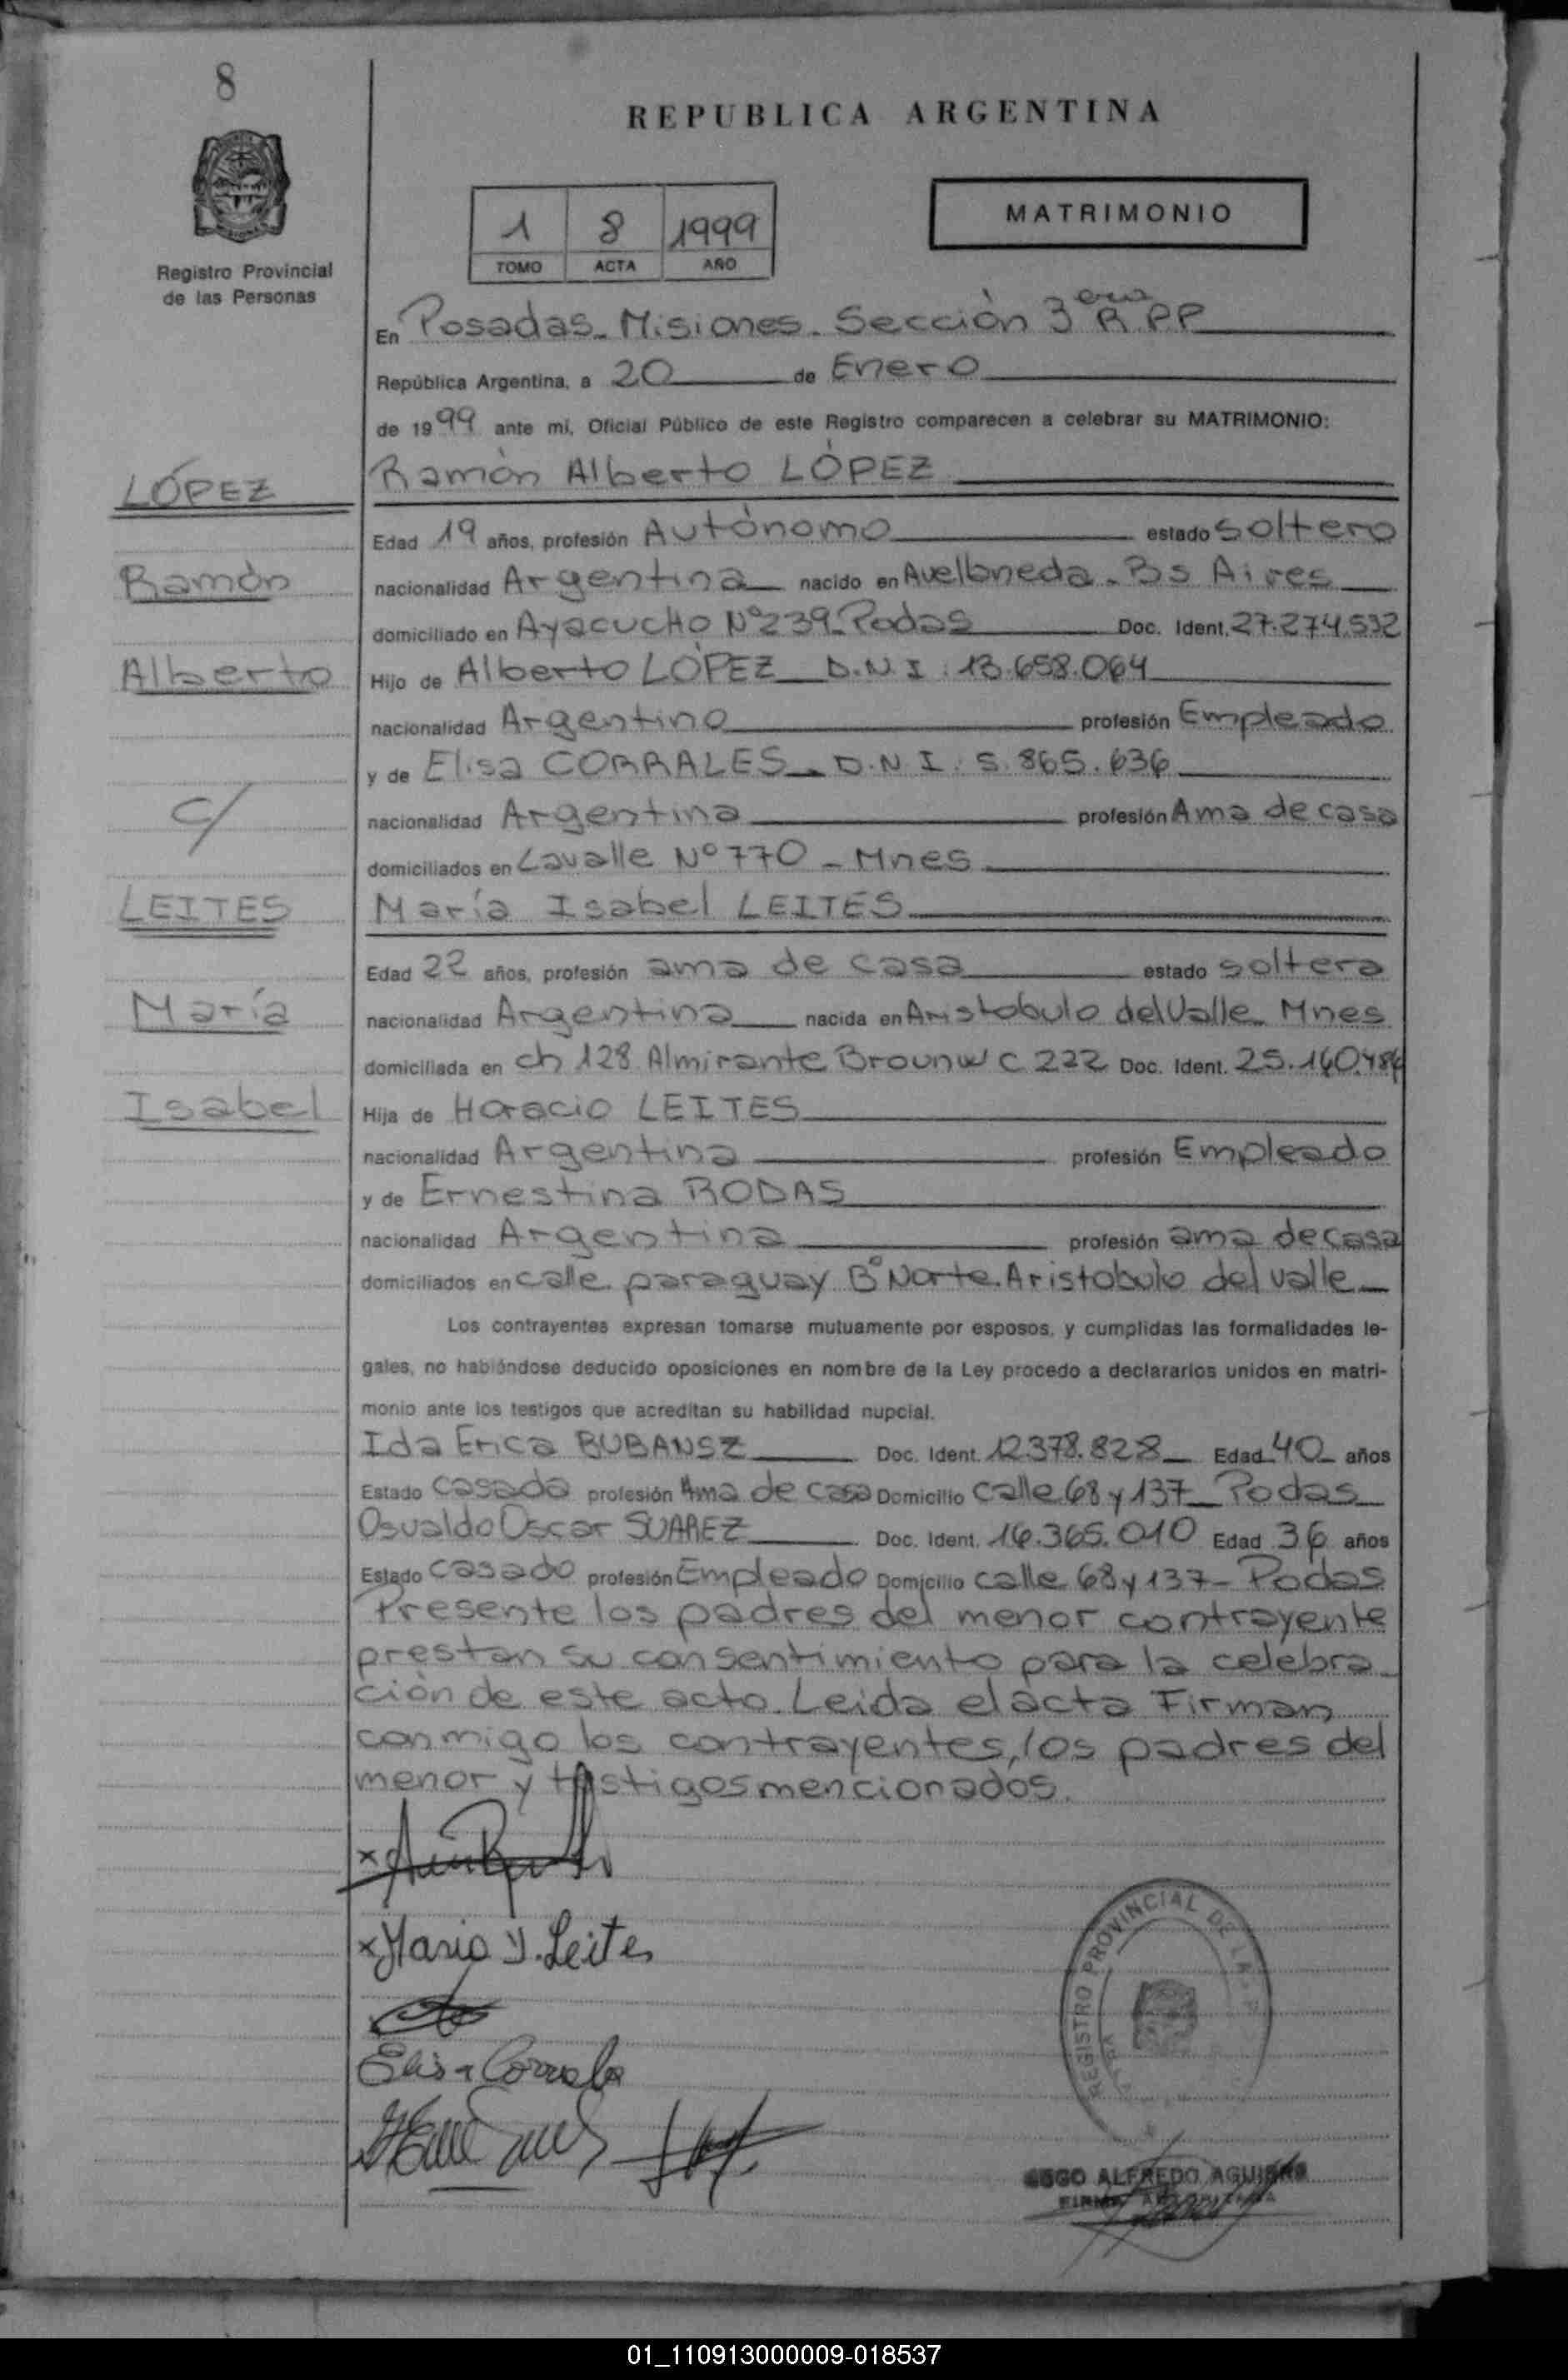 8
REPUBLICA ARGENTINA
1 8 1999
TOMO ACTA AÑO
MATRIMONIO
Registro Provincial
de las Personas
En Posadas - Misiones - Sección 3era R.PP
República Argentina, a 20 de Enero
de 1999 ante mi, Oficial Público de este Registro comparecen a celebrar su MATRIMONIO:
LÓPEZ
Ramón Alberto LÓPEZ
Edad 19 años, profesión Autónomo estado soltero
Ramón
nacionalidad Argentina nacido en Avellaneda - Bs Aires
domiciliado en Ayacucho Nº 239 - Podas Doc. Ident. 27.274.532
Alberto
Hijo de Alberto LÓPEZ D.N.I: 13.658.064
nacionalidad Argentino profesión Empleado
y de Elisa CORRALES - D.N.I: 5.865.636
C/
nacionalidad Argentina profesión Ama de casa
domiciliados en Lavalle Nº 770 - Mnes
LEITES
María Isabel LEITES
Edad 22 años, profesión ama de casa estado soltera
María
nacionalidad Argentina nacida en Aristobulo del Valle Mnes
domiciliada en ch 128 Almirante Brounw C 222 Doc. Ident. 25.160.486
Isabel
Hija de Horacio LEITES
nacionalidad Argentina profesión Empleado
y de Ernestina RODAS
nacionalidad Argentina profesión ama de casa
domiciliados en calle paraguay Bº Norte. Aristobulo del valle
Los contrayentes expresan tomarse mutuamente por esposos, y cumplidas las formalidades le-
gales, no habiéndose deducido oposiciones en nombre de la Ley procedo a declararlos unidos en matri-
monio ante los testigos que acreditan su habilidad nupcial.
Ida Erica BUBANSZ Doc. Ident. 12378.828 Edad 40 años
Estado casada profesión Ama de casa Domicilio calle 68 y 137 - Podas
Osvaldo Oscar SUAREZ Doc. Ident. 16.365.010 Edad 36 años
Estado casado profesión Empleado Domicilio calle 68 y 137 - Podas
Presente los padres del menor contrayente
prestan su consentimiento para la celebra-
ción de este acto. Leida el acta Firman
conmigo los contrayentes, los padres del
menor y testigos mencionados.
x
x Maria Y. Leites
Elisa Corrales
REGISTRO PROVINCIAL DE LAS
ALFREDO AGUIRRE
FIRMA AUTORIZADA
01_110913000009-018537